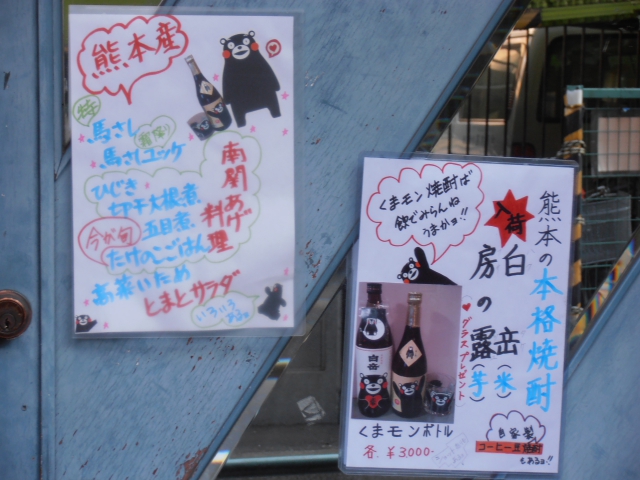 熊本産
特
馬さし
霜降り
馬さしユッケ
南関あげ料理
ひじき
切干大根煮
今が旬
五目煮
たけのこごはん
高菜いため
とまとサラダ
いろいろあるョ
くまモン焼酎ば
飲でみらんね
うまかョ!!
入荷
熊本の本格焼酎
白岳(米)
房の露(芋)
♥グラスプレゼント
白岳
くまモンボトル
各 ¥3000-
自家製
コーヒー豆焼酎
もあるョ!!